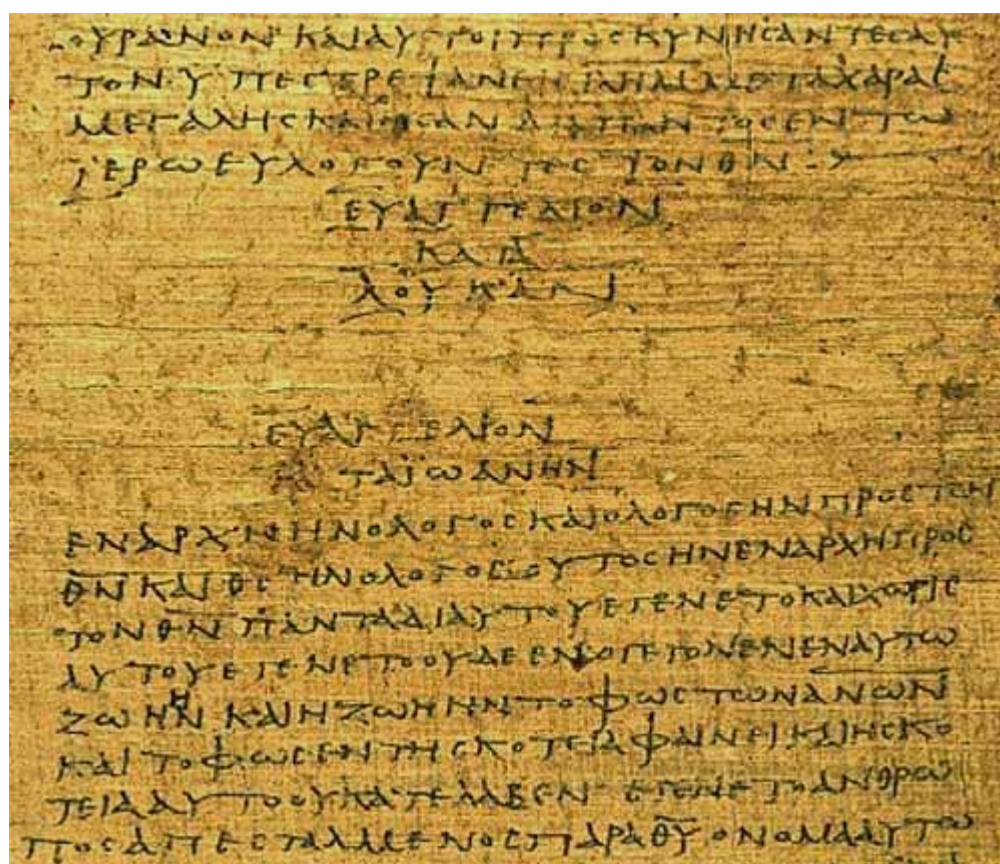 ΟΥΡΑΝΟΝ ΚΑΙ ΑΥΤΟΙ ΠΡΟΣΚΥΝΗΣΑΝΤΕΣ ΑΥ
ΤΟΝ ΥΠΕΣΤΡΕΨΑΝ ΕΙΣ ΙΗΛΗΜ ΜΕΤΑ ΧΑΡΑΣ
ΜΕΓΑΛΗΣ ΚΑΙ ΗΣΑΝ ΔΙΑ ΠΑΝΤΟΣ ΕΝ ΤΩ
ΪΕΡΩ ΕΥΛΟΓΟΥΝΤΕΣ ΤΟΝ ΘΝ
ΕΥΑΓΓΕΛΙΟΝ
ΚΑΤΑ
ΛΟΥΚΑΝ
ΕΥΑΓΓΕΛΙΟΝ
ΤΑ ΪΩΑΝΗΝ
ΕΝ ΑΡΧΗ ΗΝ Ο ΛΟΓΟΣ ΚΑΙ Ο ΛΟΓΟΣ ΗΝ ΠΡΟΣ ΤΟΝ
ΘΝ ΚΑΙ ΘΣ ΗΝ Ο ΛΟΓΟΣ ΟΥΤΟΣ ΗΝ ΕΝ ΑΡΧΗ ΠΡΟΣ
ΤΟΝ ΘΝ ΠΑΝΤΑ ΔΙ ΑΥΤΟΥ ΕΓΕΝΕΤΟ ΚΑΙ ΧΩΡΙΣ
ΑΥΤΟΥ ΕΓΕΝΕΤΟ ΟΥΔΕ ΕΝ Ο ΓΕΓΟΝΕΝ ΕΝ ΑΥΤΩ
ΖΩΗ ΗΝ ΚΑΙ Η ΖΩΗ ΗΝ ΤΟ ΦΩΣ ΤΩΝ ΑΝΩΝ
ΚΑΙ ΤΟ ΦΩΣ ΕΝ ΤΗ ΣΚΟΤΕΙΑ ΦΑΙΝΕΙ ΚΑΙ Η ΣΚΟ
ΤΕΙΑ ΑΥΤΟ ΟΥ ΚΑΤΕΛΑΒΕΝ ΕΓΕΝΕΤΟ ΑΝΘΡΩ
ΠΟΣ ΑΠΕΣΤΑΛΜΕΝΟΣ ΠΑΡΑ ΘΥ ΟΝΟΜΑ ΑΥΤΩ